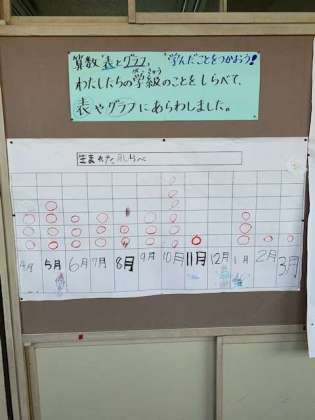 算数「表とグラフ」 "学んだことをつかおう!
わたしたちの学級のことをしらべて、
がっきゅう
表やグラフにあらわしました。
生まれた月しらべ
4月 5月 6月 7月 8月 9月 10月 11月 12月 1月 2月 3月